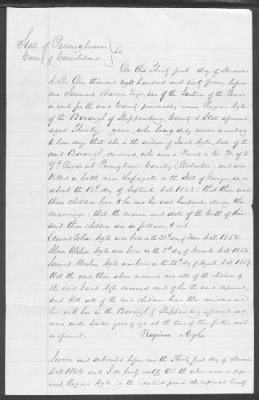 State of Pennsylvania
County of Cumberland } SS.
On this Thirty first day of December
A.D. One thousand eight hundred and sixty four, before
me Samuel Esqr, one of the Justices of the Peace
in and for the said County personally came Regina Agle
of the Borough of Shippensburg, County & State aforesaid
aged Thirty years, who being duly sworn according
to law says that she is the widow of Jacob Agle, late of the
said Borough, deceased, who was a
Pennsylvania Cavalry (Volunteers) and was
killed in battle near Lafayette in the State of Georgia, on or
about the 13th day of September A.D. 1863: that there were
three children born to her and her said husband during their
marriage; that the names and dates of the birth of their
said three children are as follows, to wit.
Edward Agle was born on the 20th day of June A.D. 1854.
Agle was born on the day of March A.D. 1856
Samuel Agle was born on the 28th day of August A.D. 1857,
that the said three above named are all of the children of
the said Jacob Agle deceased and of her the said deponent,
and that all of the said children have their residence
with her in the Borough of Shippensburg aforesaid and
were under sixteen years of age at the time of their father's death
as aforesaid.
Regina Agle
Sworn and subscribed before me the Thirty first day of December
A.D. 1864 and I do hereby certify that the above named depo-
nent Regina Agle, is the